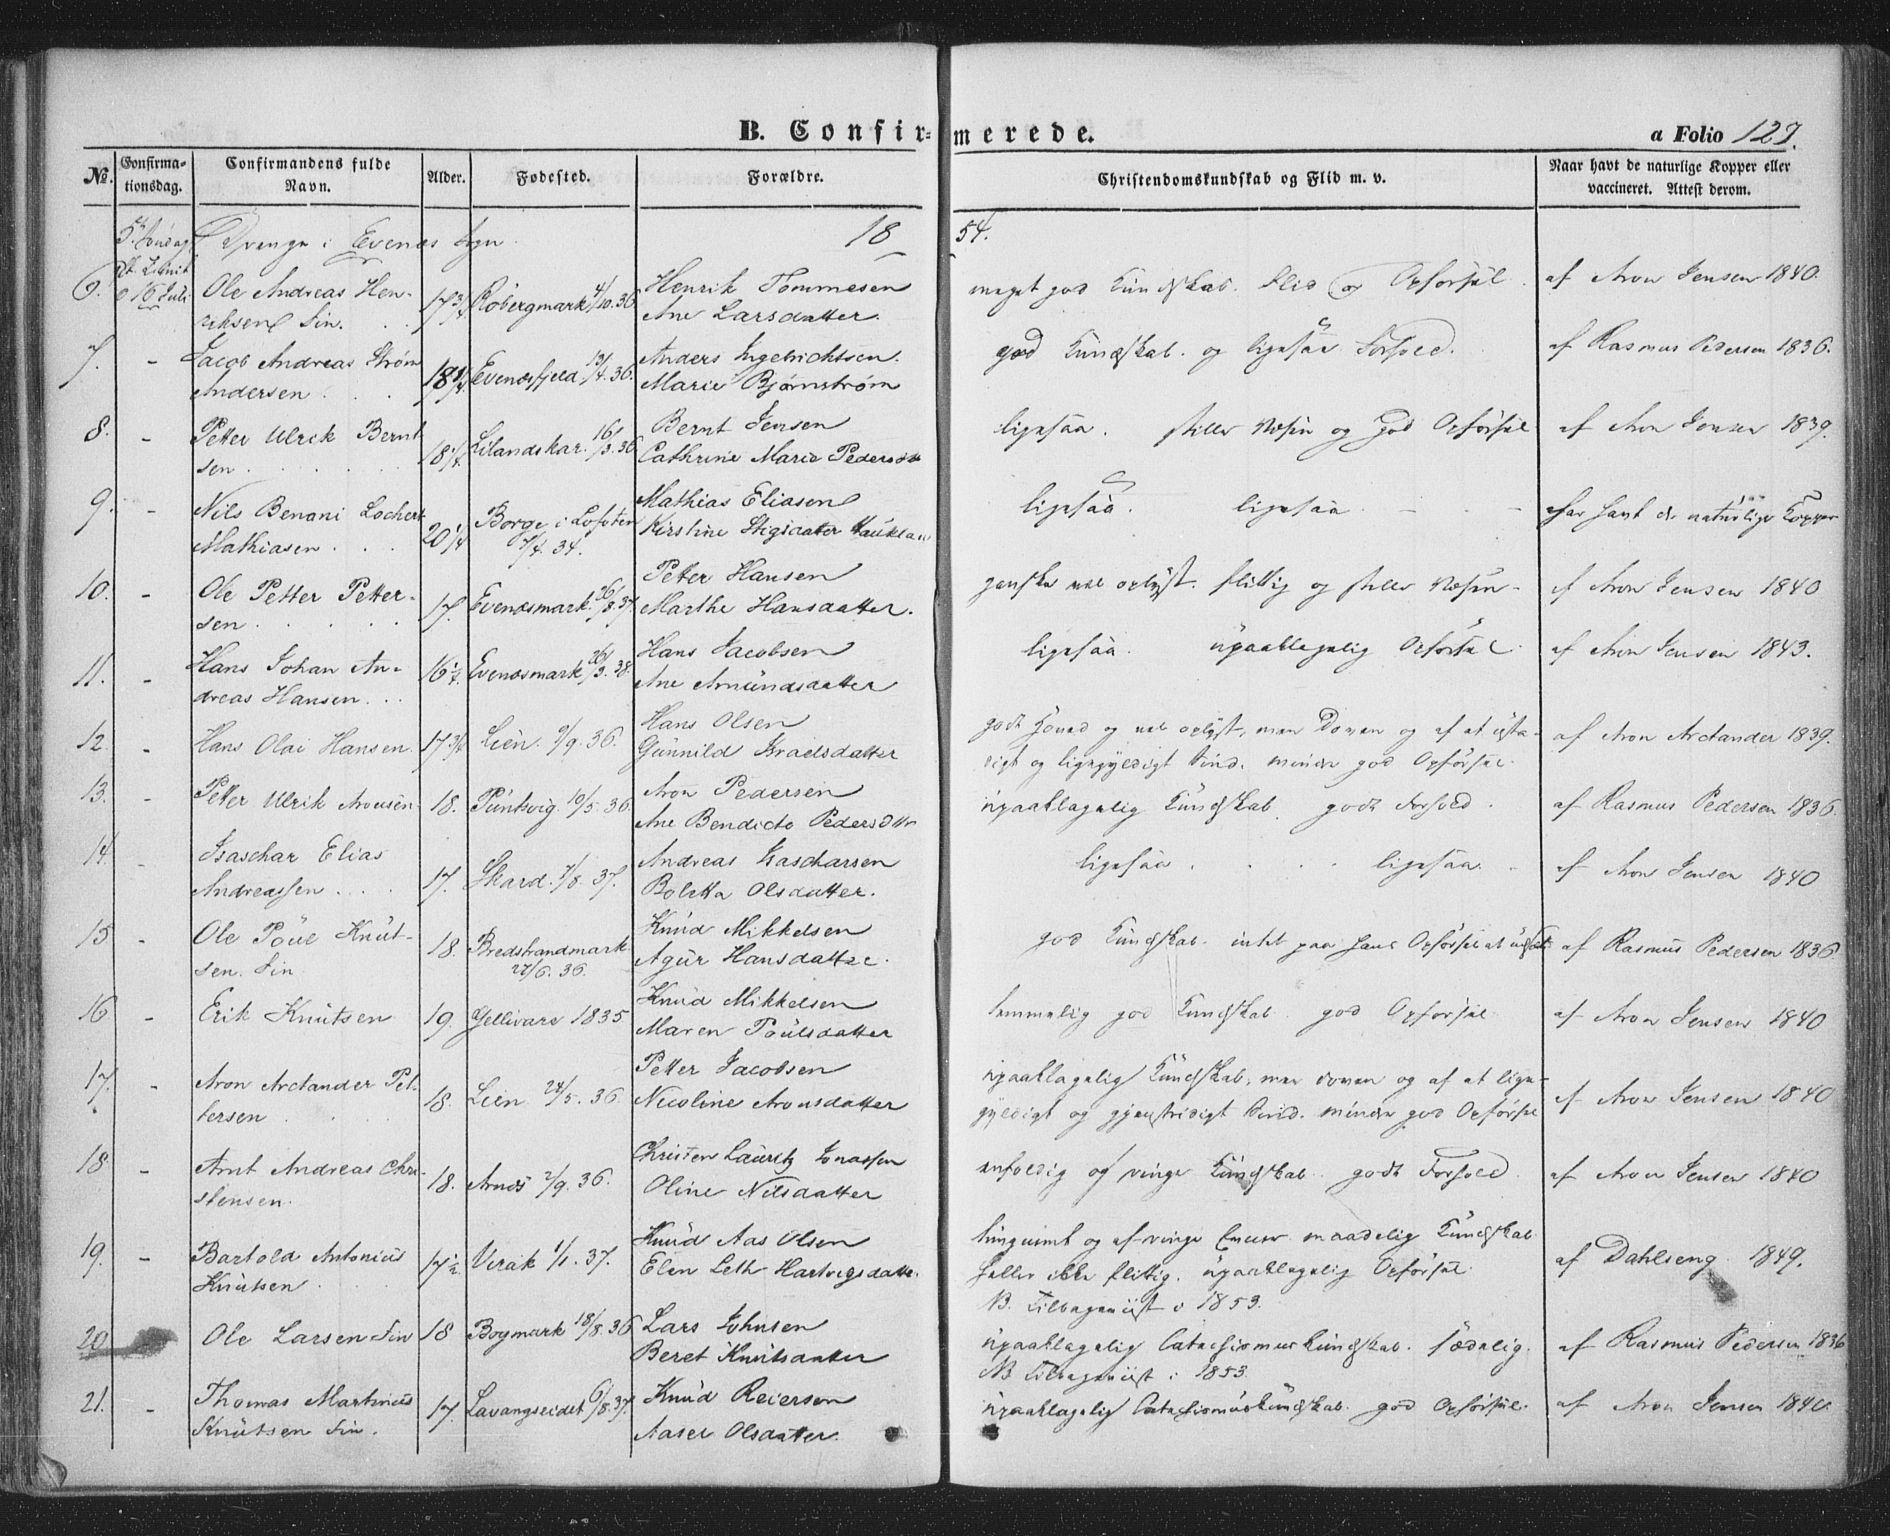 B. Confir-merede.
a Folio 127.
No.
Confirma-tionsdag.
Confirmandens fulde Navn.
Alder.
Fødested.
Forældre.
Christendomskundskab og Flid m. v.
Naar havt de naturlige Kopper eller vaccineret. Attest derom.
Drenge i Evenes Sogn. 18 54.
6. 16 Juli Ole Andreas Hen- 17 3/4 Røbergmark 4/10. 36 Henrik Tommesen meget god Kundskab. Flid og Opførsel. af Aron Jensen 1840.
riksen Fin. Ane Larsdatter.
7. - Jacob Andreas Strøm 18 1/4 Evenesfjeld 13/4. 36. Anders Ingebrichtsen. god Kundskab. og ligesaa Forhold. af Rasmus Pedersen 1836.
Andersen Marie Bjørnstrøm
8. - Petter Ulrik Bernt 18 1/4 Lilandskar. 16/3. 36 Bernt Jensen ligesaa. stille Væsen og god Opførsel af Aron Jensen 1839.
sen Cathrine Marie Pedersdtr
9. - Nils Benoni Lochert 20 1/4 Borge i Lofoten Mathias Eliasen ligesaa. ligesaa har havt de naturlige Kopper
Mathiasen 7/4. 34. Kirstine Stigsdatter
10. - Ole Petter Petter- 17. Evenesmark. 26/8. 37. Peter Hansen ganske vel oplyst. flittig og stille Væsen af Aron Jensen 1840
sen Marthe Hansdatter.
11. - Hans Johan An- 16 1/4. Evenesmark 26/3. 38. Hans Jacobsen ligesaa. upaaklagelig Opførsel af Aron Jensen 1843.
dreas Hansen Ane Amundsdatter
12. - Hans Olai Hansen 17 3/4 Lien. 9/9. 36. Hans Olsen godt Hoved og vel oplyst, men Doven og af et usta- af Aron Arctander 1839.
Gunnild Israelsdatter digt og ligegyldigt Sind. mindre god Opførsel.
13. - Petter Ulrik Aronsen 18. Puntsvig 10/5. 36 Aron Pedersen upaaklagelig Kundskab. godt Forhold. af Rasmus Pedersen 1836
Ane Bendicte Pedersdtr
14. - Isaschar Elias 17. Skard. 7/8. 37. Andreas Isascharsen ligesaa ligesaa. af Aron Jensen 1840
Andreassen Boletta Olsdatter.
15 - Ole Poul Knut- 18. Bredstrandmark Knud Mikkelsen god Kundskab. intet paa hans Opførsel at af Rasmus Pedersen 1836
sen. Fin 27/6. 36. Agur Hansdatter.
16 - Erik Knutsen 19. Gellivare 1835 Knud Mikkelsen temmelig god Kundskab. god Opførsel af Aron Jensen 1840
Maren Poulsdatter
17. - Aron Arctander Pet- 18. Lien 24/5. 36 Petter Jacobsen upaaklagelig Kundskab, men doven og af et lige- af Aron Jensen 1840
tersen Nicoline Aronsdatter gyldigt og gjenstridigt Sind. mindre god Opførsel
18. - Arnt Andreas Chri- 18. Arnes 2/9. 36. Christen Lauritz Jonassen enfoldig og ringe Kundskab. godt Forhold. af Aron Jensen 1840
stensen. Oline Nilsdatter
19. - Bartold Antonius 17 1/2 Virak 1/1. 37. Knud Aas Olsen tungnemt og af ringe Evner. maadelig Kundskab af Dahlseng 1849.
Knutsen Elen Leth Hartvigsdatter. heller ikke flittig. upaaklagelig Opførsel.
NB. Tilbageviist i 1853.
20 Ole Larsen Fin 18 Bogmark 18/8. 36 Lars Johnsen upaaklagelig Catechismuskundskab. sædelig. af Rasmus Pedersen 1836
Beret Knutsdatter NB Tilbageviist i 1853.
21. - Thomas Martinus 17. Lavangseidet 6/8. 37. Knud Reiersen upaaklagelig Catechismuskundskab. god Opførsel. af Aron Jensen 1840.
Knutsen Fin. Aaser Olsdatter.